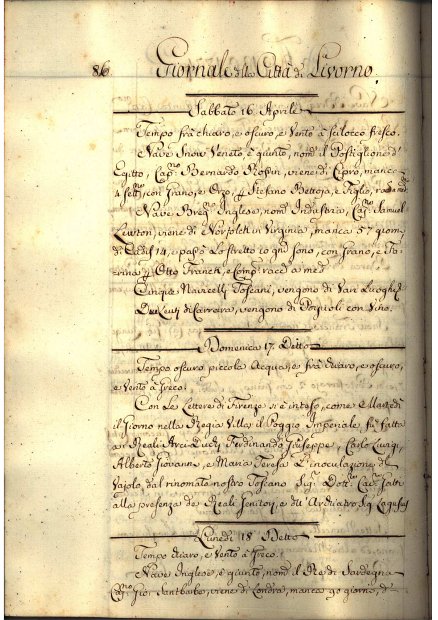 86 Giornale della Città di Livorno.
Sabbato 16 Aprile
Tempo frà chiaro, e oscuro, e Vento à Scilocco fresco.
Nave Snow Veneto, è giunto, nom.º il Postiglione d'
Egitto, Cap.no Bernardo viene di Cipro, manca
4 Sett.e con Grano, e Orzo, Stefano Bettoja, e Figlio,
Nave Brig.º Inglese, nom.º Industria, Cap.no Samuel
Lawton, viene di Norfolch in Virginia, manca 57 giorni
di 14, e passò lo stretto 10 gni sono, con Grano, e Fa=
rina Otto Franck, e Comp. racc.a a me
Cinque Navicelli Toscani, vengono di Varj Luoghi
Due Leuti di Carrara, vengono di con Vino.
Domenica 17 Detto
Tempo oscuro piccola Acqua, e frà chiaro, e oscuro,
e Vento à Greco.
Con le Lettere di Firenze si è inteso, come Martedì
il Giorno nella Regia Villa il Poggio Imperiale, fù fatta
a' Reali Arciduchi Ferdinando Giuseppe, Carlo Luigi,
Alberto Giovanni, e Maria Teresa l'inoculazione del
Vajolo, dal rinomato nostro Toscano Sig. Dott.
alla presenza de' Reali Genitori, e dell' Archiatro Sig. Lagusius
Lunedì 18 Detto
Tempo chiaro, e Vento à Greco.
Nave Inglese, è giunta, nom.ª il Rè di Sardegna
Cap.no Gio: viene di Londra, manca 90 giorni, di